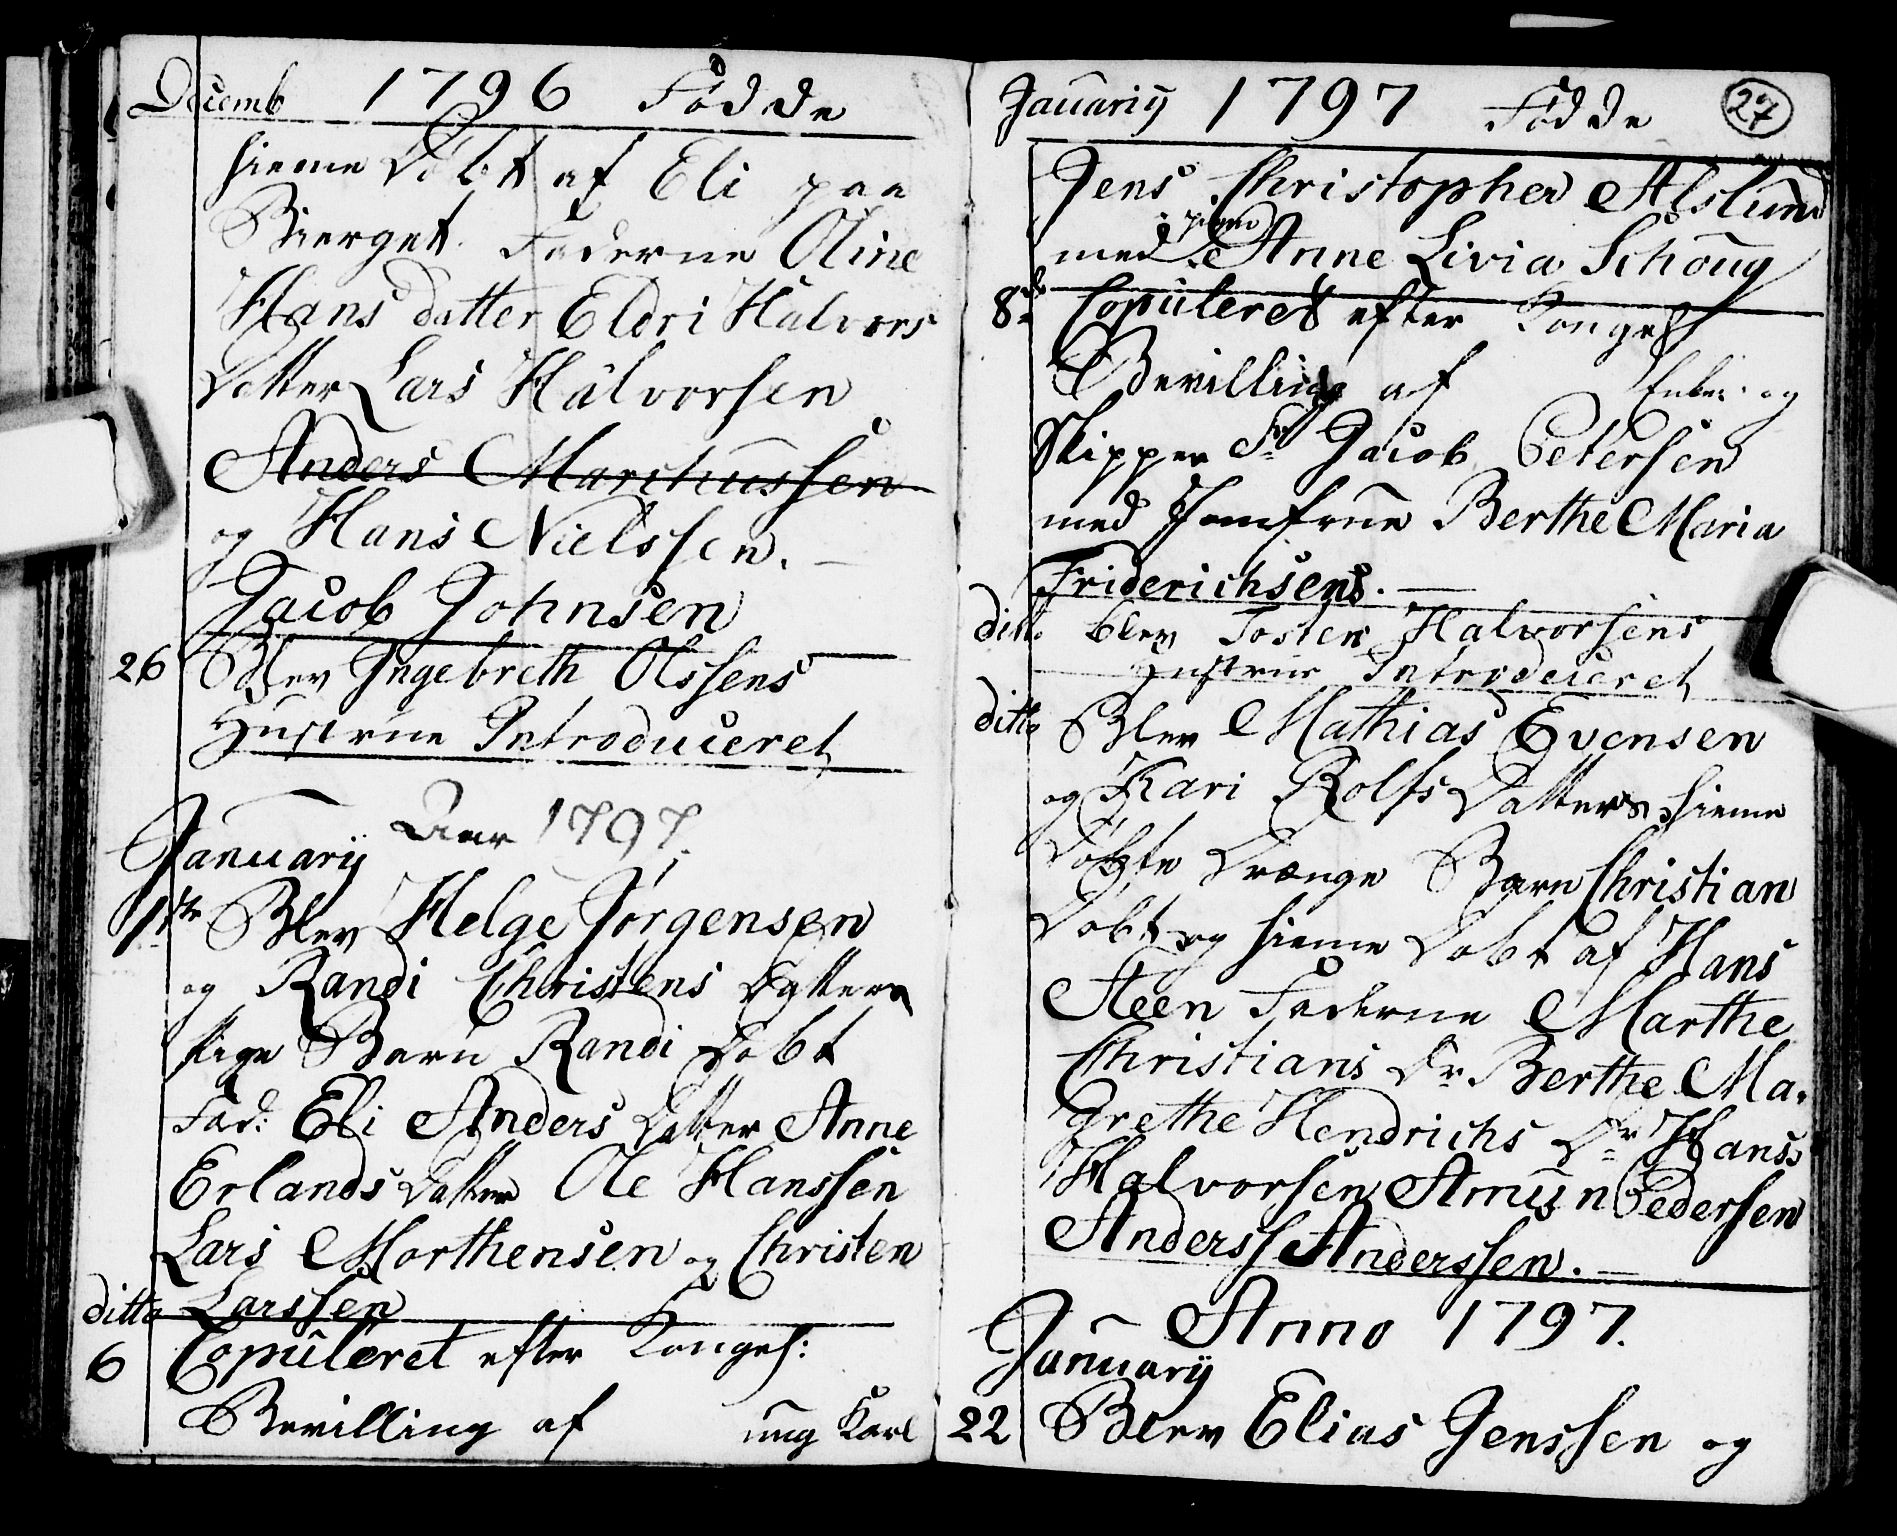 Decemb 1796 Födde
hieme Döbt af Eli paa
Bierget. Faderne Oline
Hans datter Eldri Halvors
Datter Lars Halvorsen
Anders Marchussen
og Hans Nielssen. —
Jacob Johnsen
26 Blev Ingebreth Olssens
Hustrue Introduceret
Aar 1797.
Januarij
1ste Blev Helge Jörgensen
og Randi Christens Datters
Pige Barn Randi Döbt
Fad: Eli Anders Datter Anne
Erlands Datter Ole Hanssen
Lars Morthensen og Christen
ditto Larssen
6 Copuleret efter Kongel:
Bevilling af ung Karl
Januarij 1797 Födde 27
Jens Christopher Alslund
med Pigen Anne Livia Schoug
8de Copuleret efter Kongel
Bevilling af Enke: og
Skipper Sr Jacob Petersen
med Jomfrue Berthe Maria
Friderichsens. —
ditto blev Tosten Halvorsens
Hustrue Introduceret
ditto Blev Mathias Evensen
og Kari Rolfs Datters hieme
Döbte Drænge Barn Christian
Döbt og hieme Döbt af Hans
Steen Faderne Marthe
Christians Dr Berthe Ma-
Grethe Hendrichs Dr Hans
Halvorsen Amun Pedersen
Anderss Anderssen. —
Anno 1797.
Januarij
22 Blev Elias Jenssen og